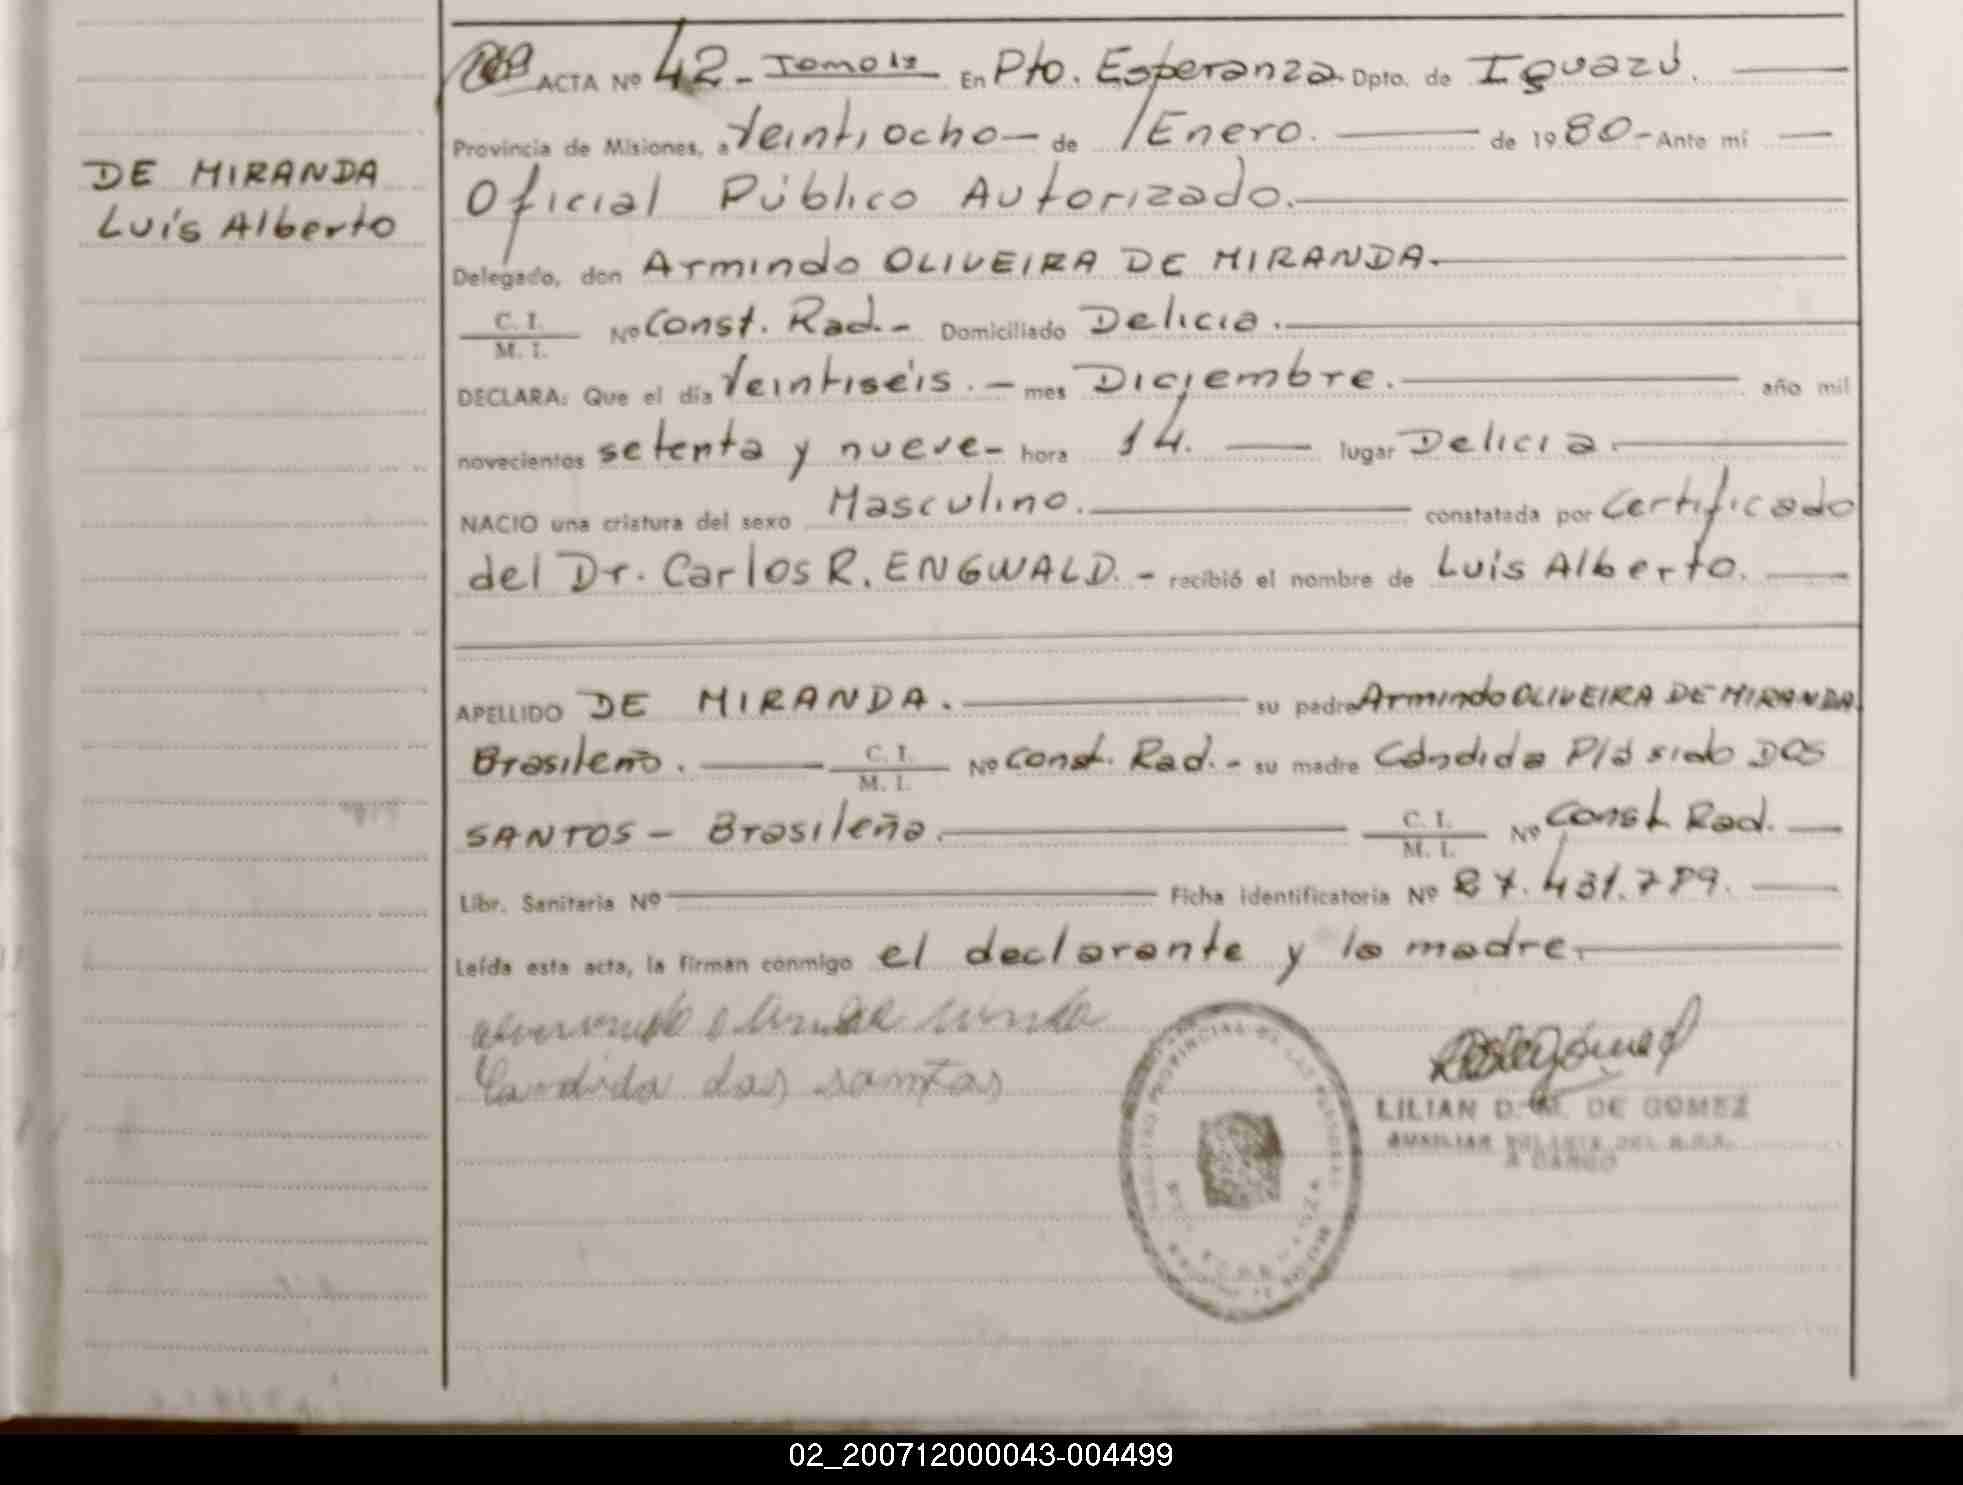 DE MIRANDA
Luis Alberto
ACTA Nº 42 - Tomo 1º En Pto. Esperanza. Dpto. de Iguazú.
Provincia de Misiones, a Veintiocho - de Enero. de 1980 - Ante mí
Oficial Público Autorizado.
Delegado, don Armindo OLIVEIRA DE MIRANDA.
C. I. / M. I. Nº Const. Rad. - Domiciliado Delicia.
DECLARA: Que el día Veintiséis. - mes Diciembre. año mil
novecientos setenta y nueve - hora 14. lugar Delicia.
NACIO una criatura del sexo Masculino. constatada por Certificado
del Dr. Carlos R. ENGWALD. - recibió el nombre de Luis Alberto.
APELLIDO DE MIRANDA. su padre Armindo OLIVEIRA DE MIRANDA.
Brasileño. C. I. / M. I. Nº Const. Rad. - su madre Cándida Plásido DOS
SANTOS - Brasileña. C. I. / M. I. Nº Const. Rad.
Libr. Sanitaria Nº Ficha identificatoria Nº 27.431.789.
Leída esta acta, la firman conmigo el declarante y la madre.
Candida dos santos
LILIAN D. M. DE GOMEZ
A CARGO
02_200712000043-004499